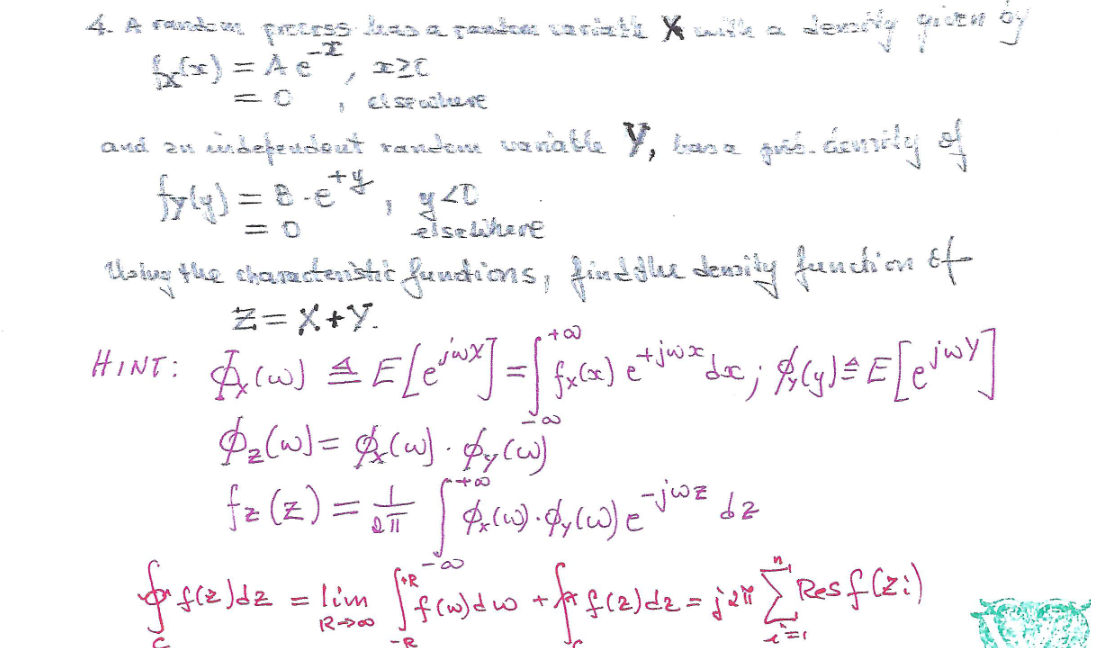 4. A random process has a random variable X with a density given by
fx(x) = A e^-x, x≥0
= 0 , elsewhere
and an independent random variable Y, has a density of
fy(y) = B·e^+y, y<0
= 0 elsewhere
Using the characteristic functions, find the density function of
Z = X+Y.
HINT: Φx(ω) ≜ E[e^jωX] = ∫_-∞^+∞ fx(x) e^+jωx dx ; ϕy(y) ≜ E[e^jωY]
ϕz(ω) = ϕx(ω) · ϕy(ω)
fz(z) = 1/2π ∫_-∞^+∞ ϕx(ω)·ϕy(ω) e^-jωz dz
∮_C f(z)dz = lim_R→∞ ∫_-R^+R f(ω)dω + ∫_C f(z)dz = j2π ∑_i=1^n Res f(zi)